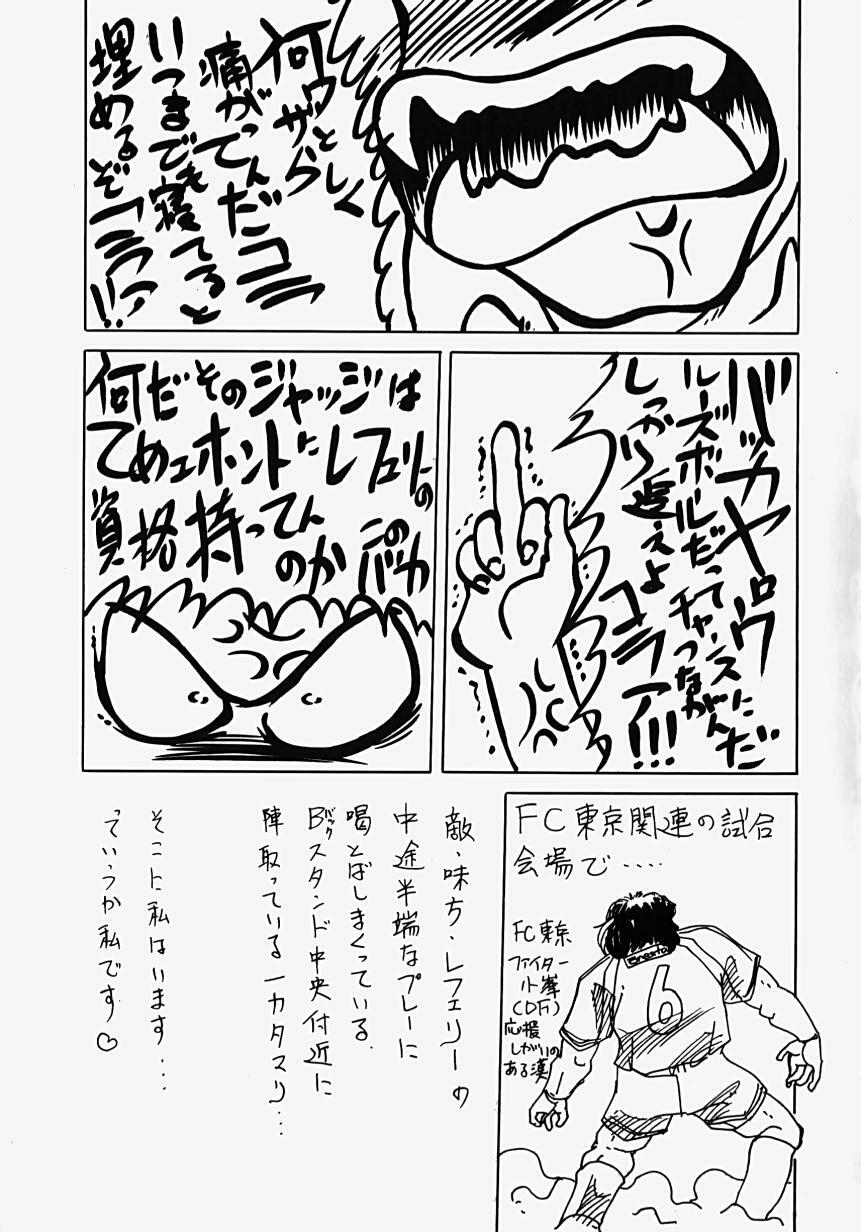 何ウザ
とらしく
痛がってんだコラ
いつまでも寝てると
埋めるぞコラァ!!
バッカヤロウ
ルーズボールだってチャンスにつながんだ
しっかり追えよ
コラァ!!!
何だそのジャッジは
てめェホントにレフェリーの
資格持ってん
のか
このバカ
FC東京関連の試合
会場で・・・・
FC東京
ファイター
小峯
(DF)
応援
しがいの
ある漢
6
敵・味方・レフェリーの
中途半端なプレーに
喝とばしまくっている
Bバックスタンド中央付近に
陣取っている一カタマリ・・・
そこに私はいます・・・
っていうか私です♡